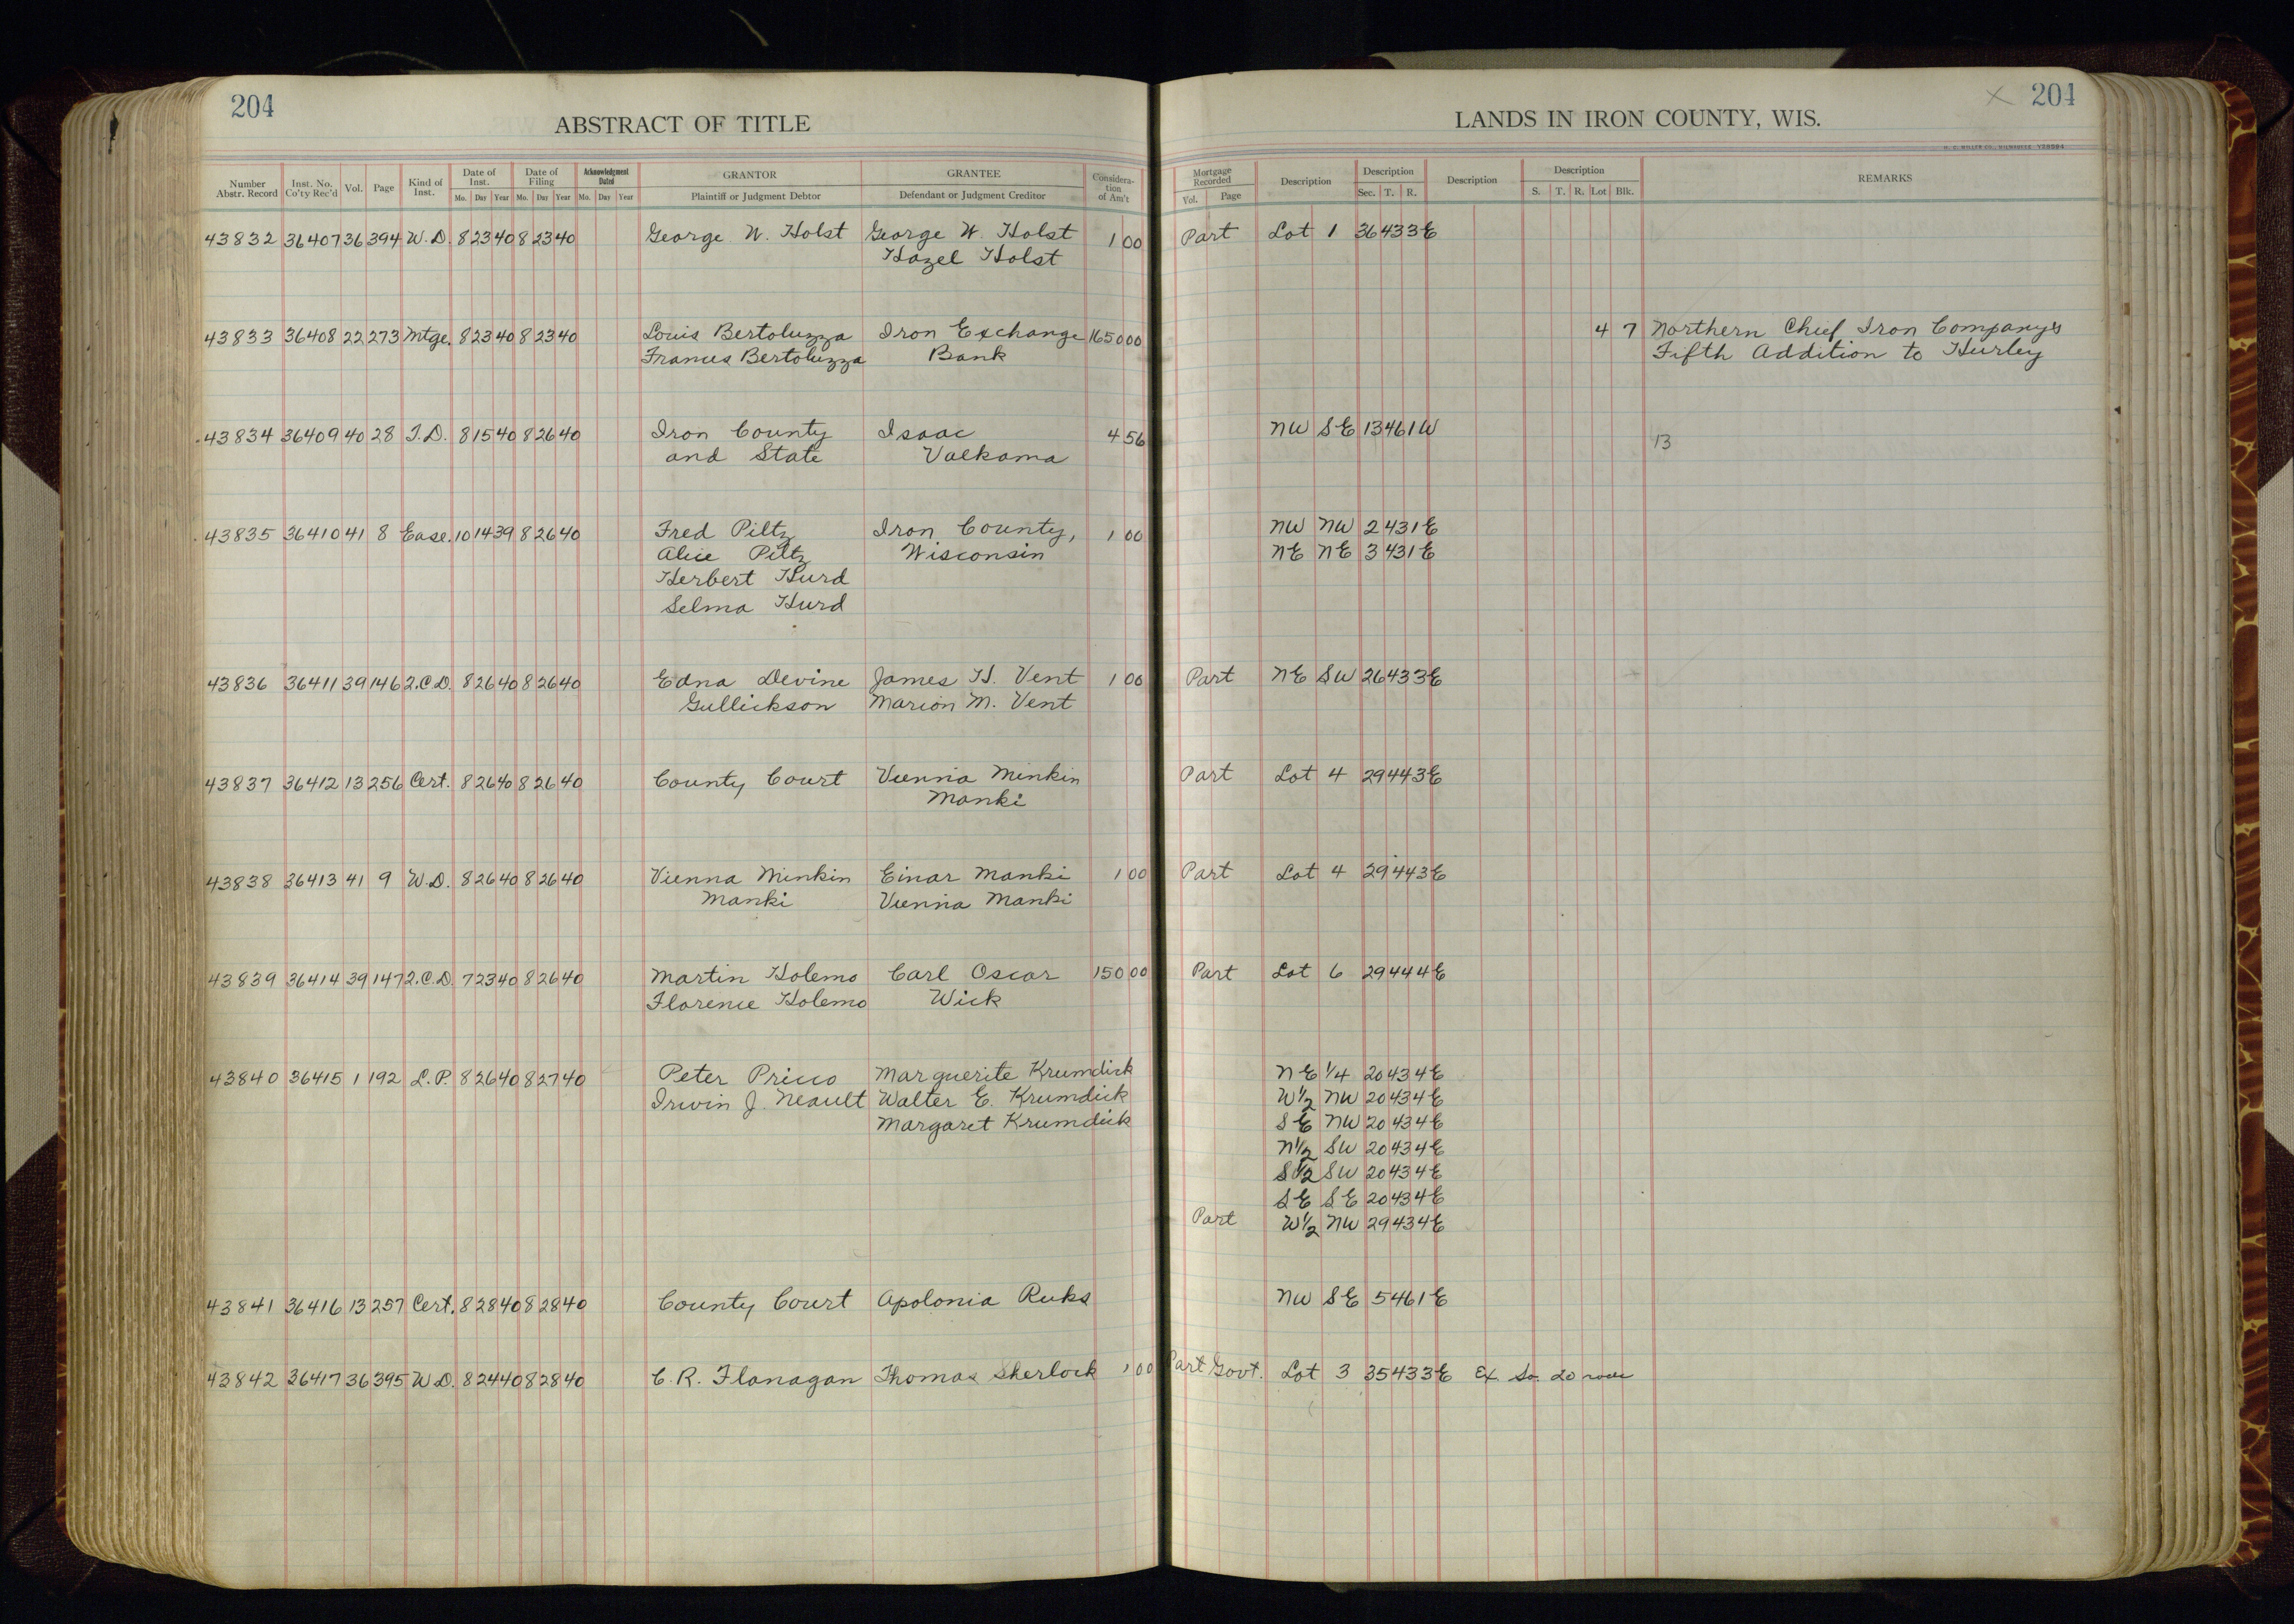 204
ABSTRACT OF TITLE
LANDS IN IRON COUNTY, WIS.
204
Number Abstr. Record Inst. No. Co'ty Rec'd Vol. Page Kind of Inst. Date of Inst. Mo. Day Year Date of Filing Mo. Day Year Acknowledgment Dated Mo. Day Year GRANTOR Plaintiff or Judgment Debtor GRANTEE Defendant or Judgment Creditor Consideration of Am't Mortgage Recorded Vol. Page Description Description Sec. T. R. Description Description S. T. R. Lot Blk. REMARKS
43832 36407 36 394 W.D. 8 23 40 8 23 40 George W. Holst George W. Holst 1 00 Part Lot 1 36 43 3E
Hazel Holst
43833 36408 22 273 Mtge. 8 23 40 8 23 40 Louis Bertoluzza Iron Exchange 1650 00 4 7 Northern Chief Iron Companys
Frances Bertoluzza Bank Fifth Addition to Hurley
43834 36409 40 28 T.D. 8 15 40 8 26 40 Iron County Isaac 4 56 NW SE 13 46 1W
and State Valkama 13
43835 36410 41 8 Ease. 10 14 39 8 26 40 Fred Piltz Iron County, 1 00 NW NW 2 43 1E
Alice Piltz Wisconsin NE NE 3 43 1E
Herbert Hurd
Selma Hurd
43836 36411 39 146 2.C.D. 8 26 40 8 26 40 Edna Devine James H. Vent 1 00 Part NE SW 26 43 3E
Gullickson Marion M. Vent
43837 36412 13 256 Cert. 8 26 40 8 26 40 County Court Vienna Minkin Part Lot 4 29 44 3E
Manki
43838 36413 41 9 W.D. 8 26 40 8 26 40 Vienna Minkin Einar Manki 1 00 Part Lot 4 29 44 3E
Manki Vienna Manki
43839 36414 39 147 2.C.D. 7 23 40 8 26 40 Martin Holemo Carl Oscar 150 00 Part Lot 6 29 44 4E
Florence Holemo Wick
43840 36415 1 192 L.P. 8 26 40 8 27 40 Peter Pricco Marguerite Krumdick NE 1/4 20 43 4E
Irwin J. Neault Walter E. Krumdick W1/2 NW 20 43 4E
Margaret Krumdick SE NW 20 43 4E
N1/2 SW 20 43 4E
S1/2 SW 20 43 4E
SE SE 20 43 4E
Part W1/2 NW 29 43 4E
43841 36416 13 257 Cert. 8 28 40 8 28 40 County Court Apolonia Ruks NW SE 5 46 1E
43842 36417 36 395 W.D. 8 24 40 8 28 40 C. R. Flanagan Thomas Sherlock 1 00 Part Govt. Lot 3 35 43 3E Ex. So. 20 rods